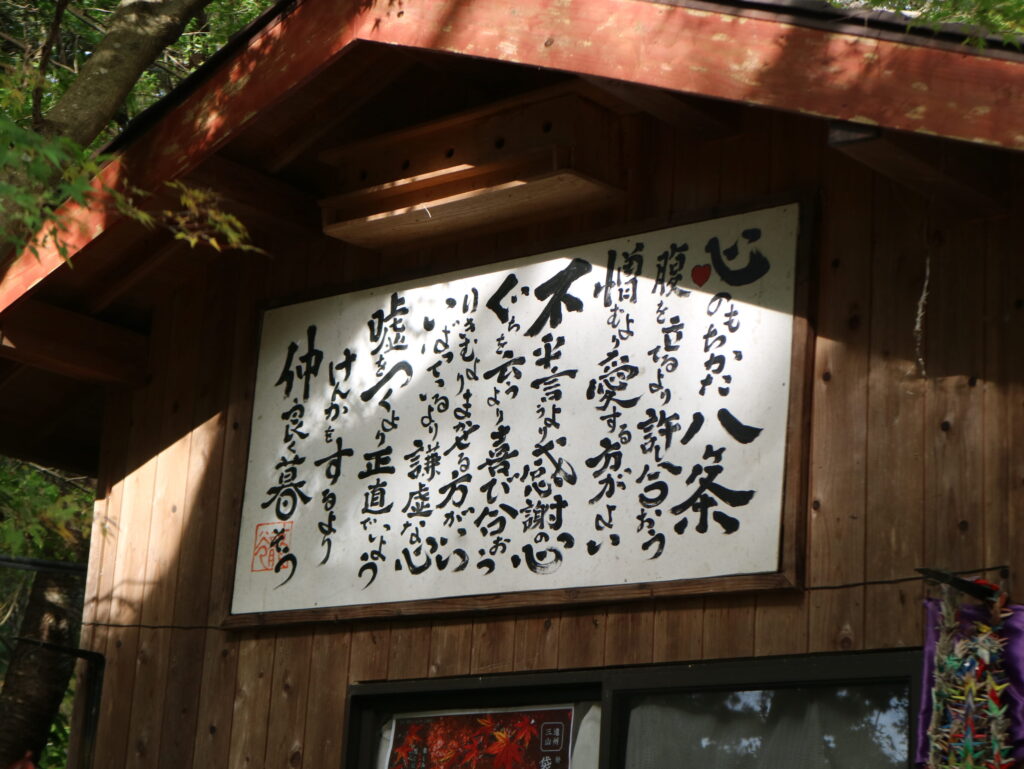 心のもちかた八ヶ条
腹を立てるより許し合おう
憎むより愛する方がよい
不平言うより感謝の心
ぐちを云うより喜び合おう
りきむよりまかせる方がいい
いばっているより謙虚な心
嘘をつくより正直でいよう
けんかをするより
仲良く暮そう
遠州
三山
袋